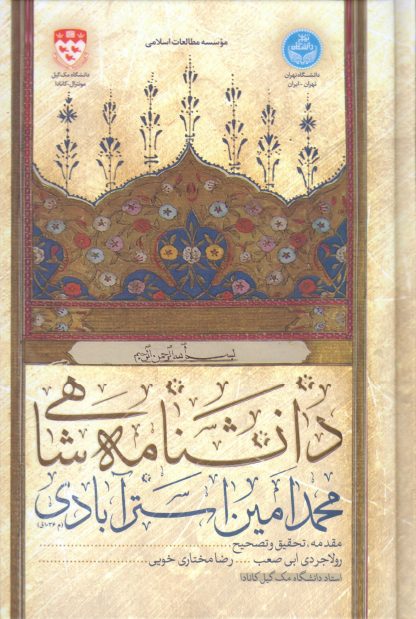 مؤسسه مطالعات اسلامی
دانشگاه تهران
تهران - ایران
دانشگاه مک‌گیل
مونترال-کانادا
بسم الله الرحمن الرحیم
دانشنامه شاهی
محمد امین استرآبادی (م ۱۰۳۶ق)
مقدمه، تحقیق و تصحیح
رولا جردی ابی صعب .... رضا مختاری خویی
استاد دانشگاه مک گیل کانادا